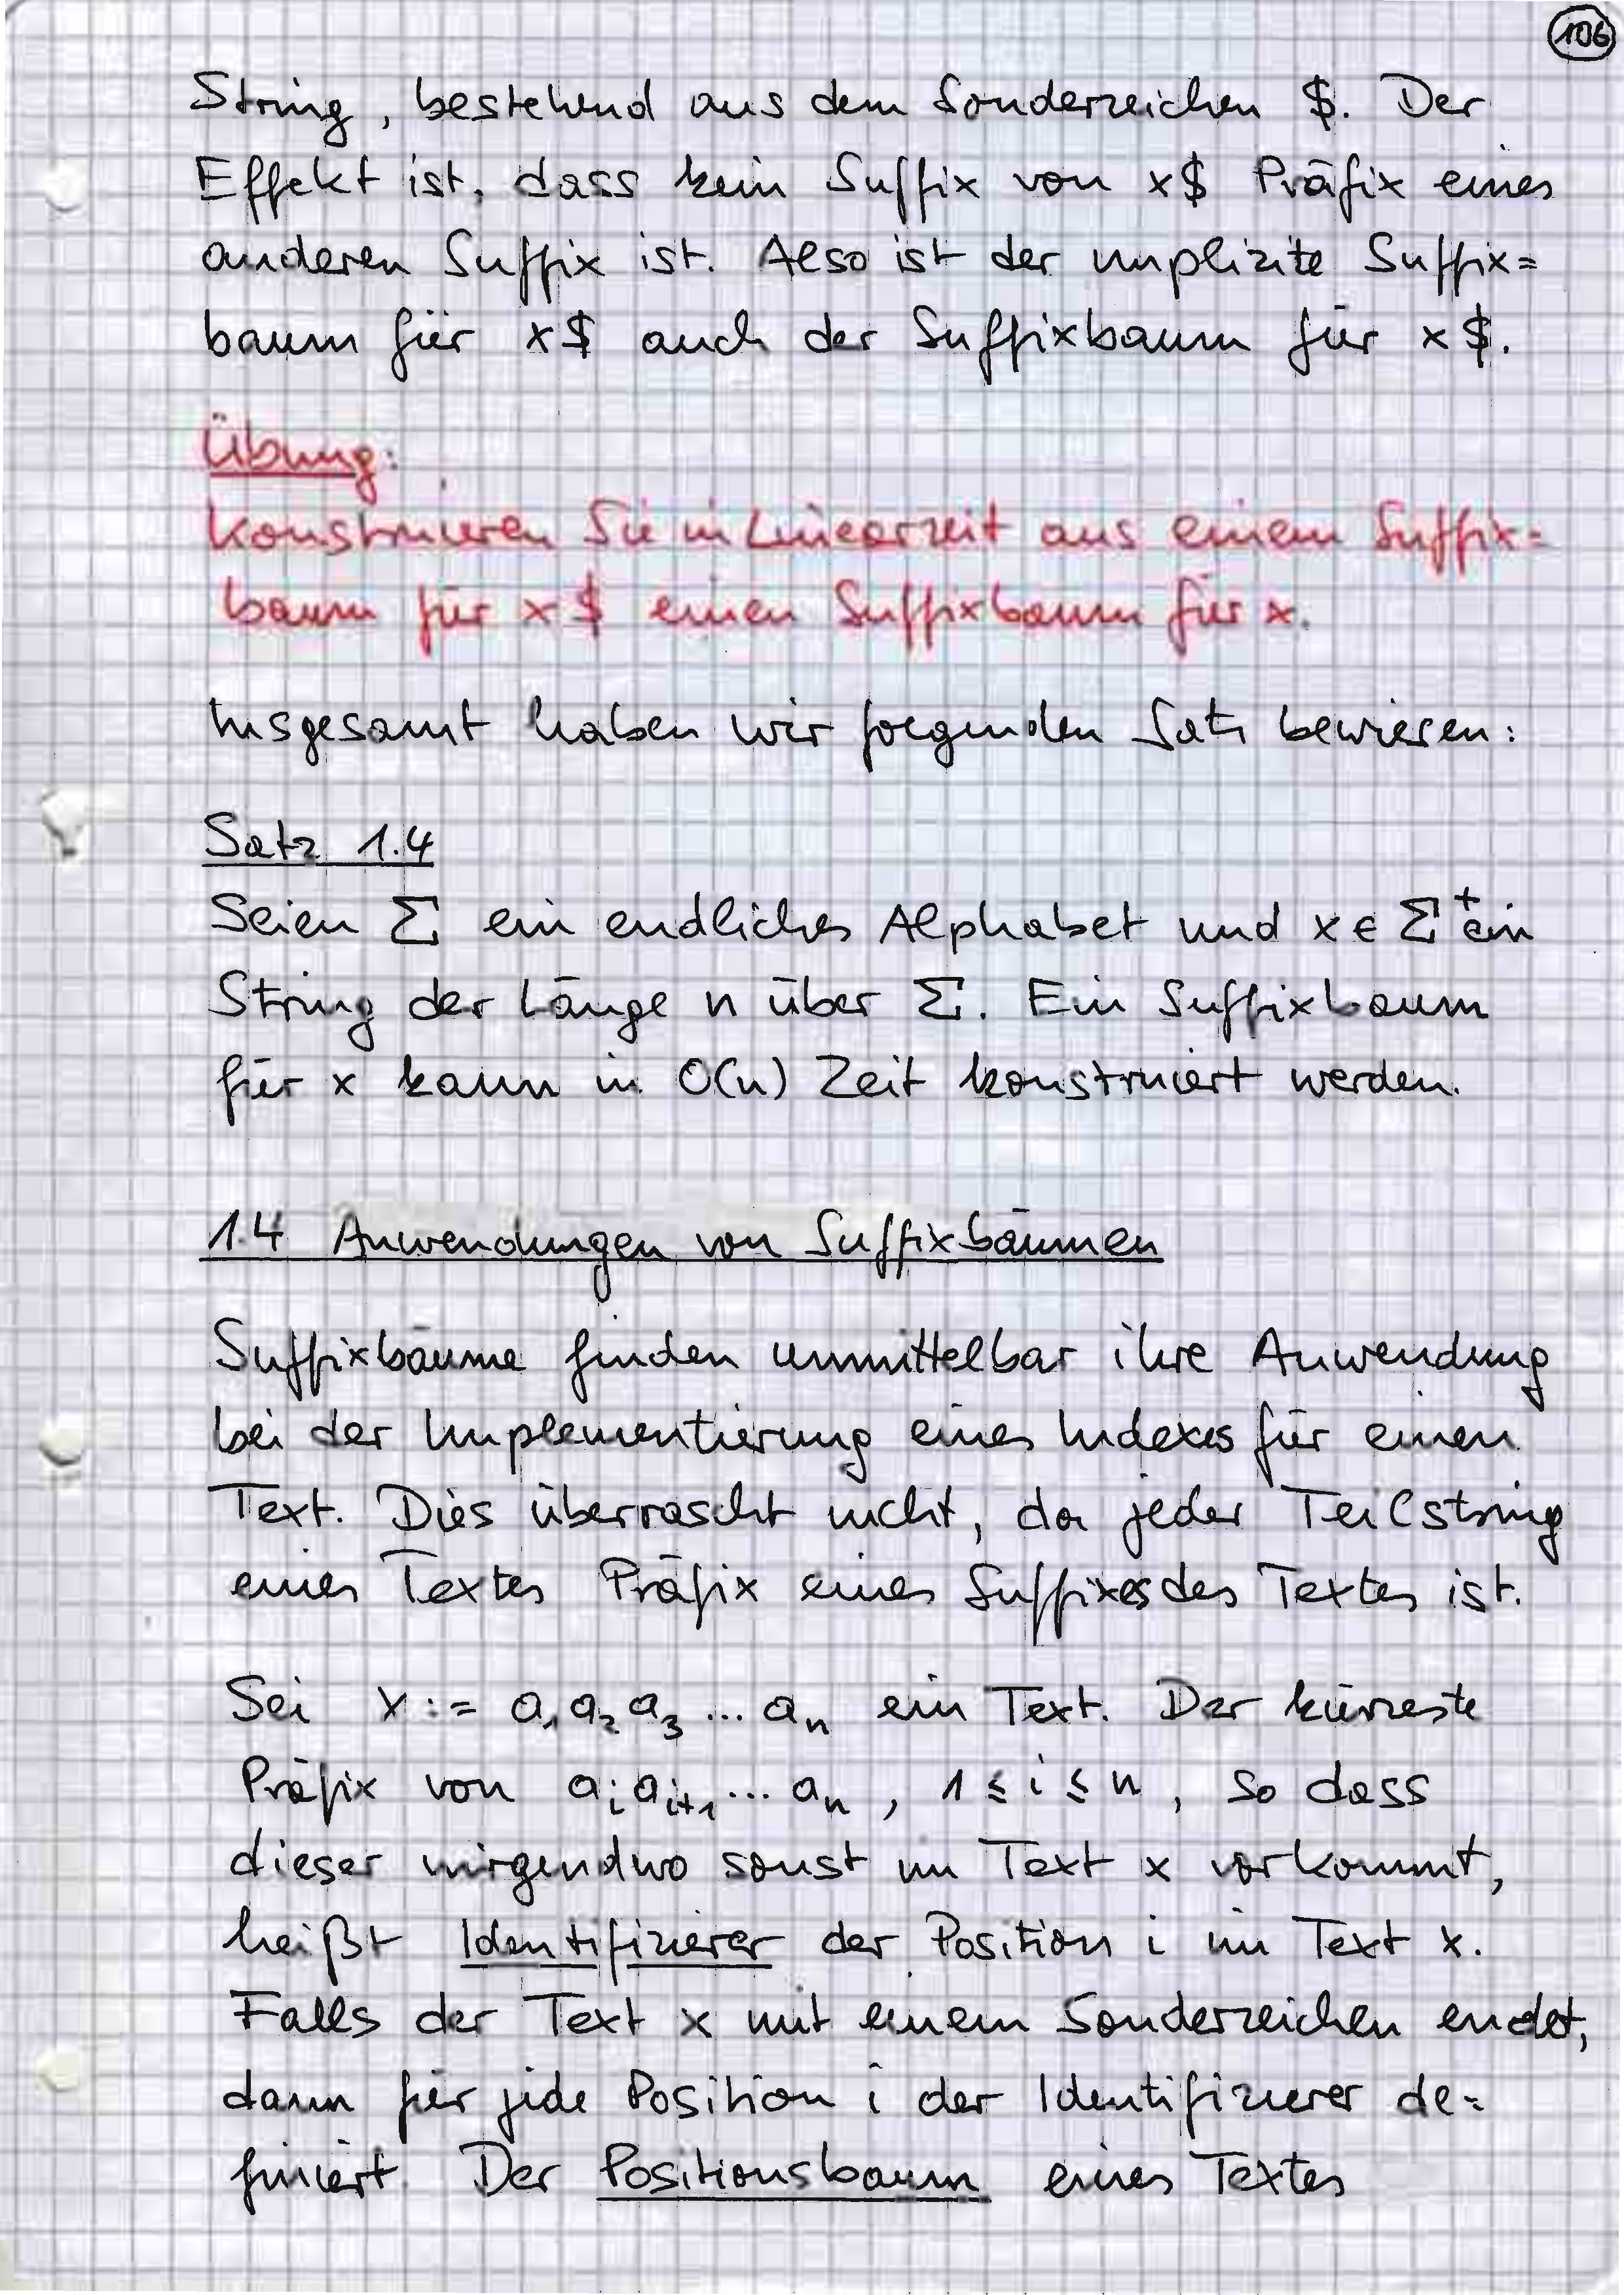 106
String, bestehend aus dem Sonderzeichen $. Der
Effekt ist, dass kein Suffix von x$ Präfix eines
anderen Suffix ist. Also ist der implizite Suffix=
baum für x$ auch der Suffixbaum für x$.
Übung:
Konstruieren Sie in Linearzeit aus einem Suffix=
baum für x$ einen Suffixbaum für x.
Insgesamt haben wir folgenden Satz bewiesen:
Satz 1.4
Seien Σ ein endliches Alphabet und x ∈ Σ⁺ ein
String der Länge n über Σ. Ein Suffixbaum
für x kann in O(n) Zeit konstruiert werden.
1.4 Anwendungen von Suffixbäumen
Suffixbäume finden unmittelbar ihre Anwendung
bei der Implementierung eines Indexes für einen
Text. Dies überrascht nicht, da jeder Teilstring
eines Textes Präfix eines Suffixes des Textes ist.
Sei x := a₁a₂a₃...aₙ ein Text. Der kürzeste
Präfix von aᵢaᵢ₊₁...aₙ, 1 ≤ i ≤ n, so dass
dieser nirgendwo sonst im Text x vorkommt,
heißt Identifizierer der Position i im Text x.
Falls der Text x mit einem Sonderzeichen endet,
dann für jede Position i der Identifizierer de=
finiert. Der Positionsbaum eines Textes